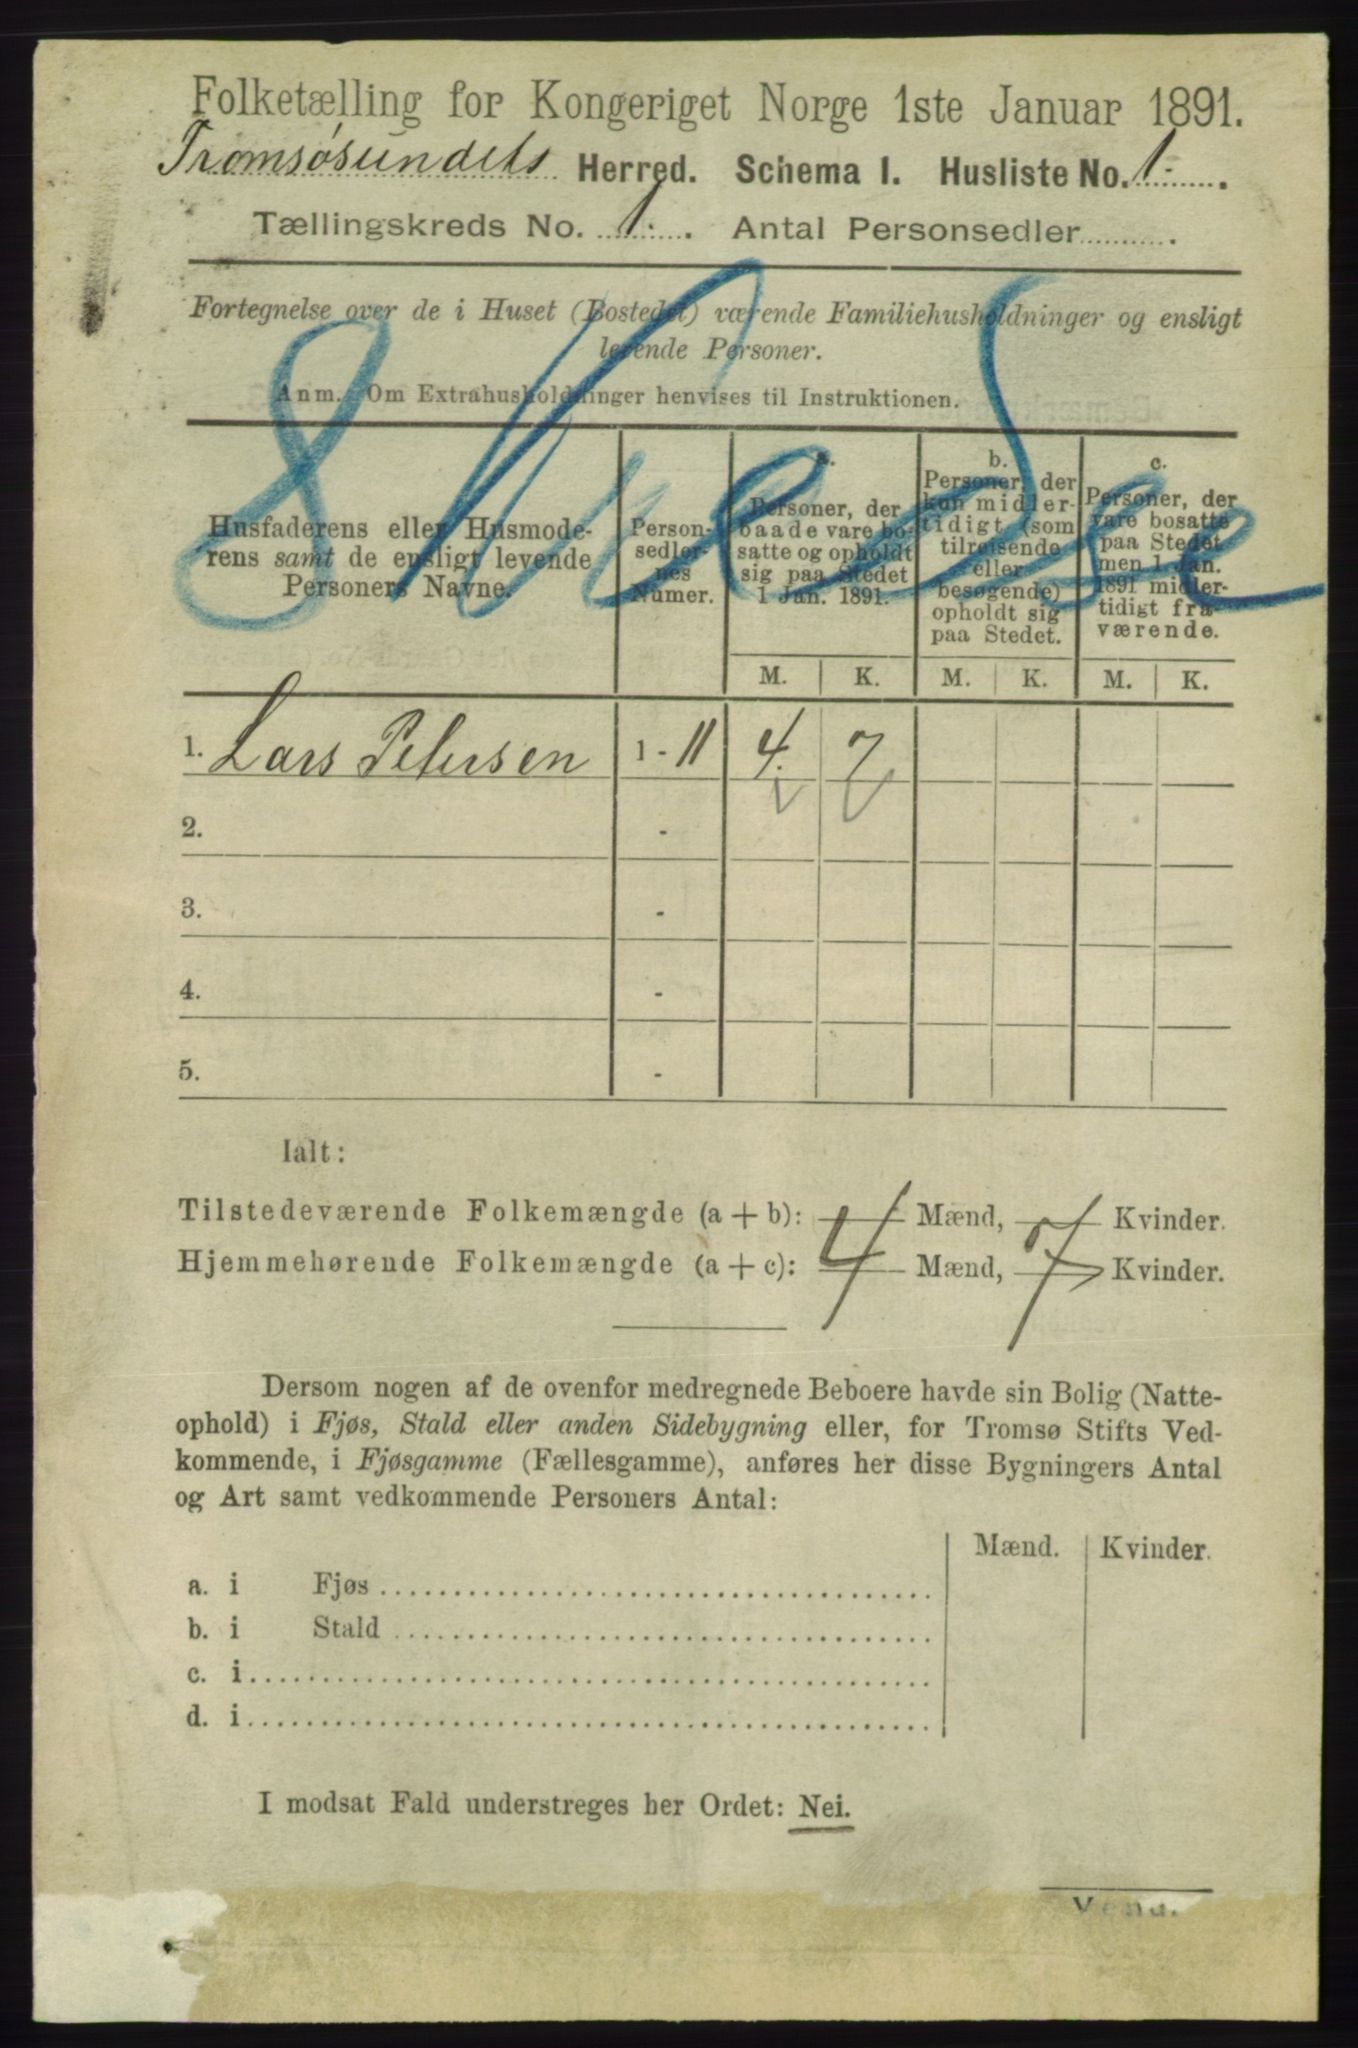 Folketælling for Kongeriget Norge 1ste Januar 1891.
Tromsøsundets Herred. Schema I. Husliste No. 1.
Tællingskreds No. 1. Antal Personsedler
Fortegnelse over de i Huset (Bostedet) værende Familiehusholdninger og ensligt
levende Personer.
Anm. Om Extrahusholdninger henvises til Instruktionen.
Husfaderens eller Husmode-
rens samt de ensligt levende
Personers Navne.
Person-
sedler-
nes
Numer.
a.
Personer, der
baade vare bo-
satte og opholdt
sig paa Stedet
1 Jan. 1891.
b.
Personer, der
kun midler-
tidigt (som
tilreisende
eller
besøgende)
opholdt sig
paa Stedet.
c.
Personer, der
vare bosatte
paa Stedet
men 1 Jan.
1891 midler-
tidigt fra-
værende.
M. K. M. K. M. K.
1. Lars Petersen 1 - 11 4. 7
2. -
3. -
4. -
5. -
Ialt:
Tilstedeværende Folkemængde (a + b): 4 Mænd, 7 Kvinder.
Hjemmehørende Folkemængde (a + c): Mænd, Kvinder.
Dersom nogen af de ovenfor medregnede Beboere havde sin Bolig (Natte-
ophold) i Fjøs, Stald eller anden Sidebygning eller, for Tromsø Stifts Ved-
kommende, i Fjøsgamme (Fællesgamme), anføres her disse Bygningers Antal
og Art samt vedkommende Personers Antal:
Mænd. Kvinder.
a. i Fjøs
b. i Stald
c. i
d. i
I modsat Fald understreges her Ordet: Nei.
Vend.